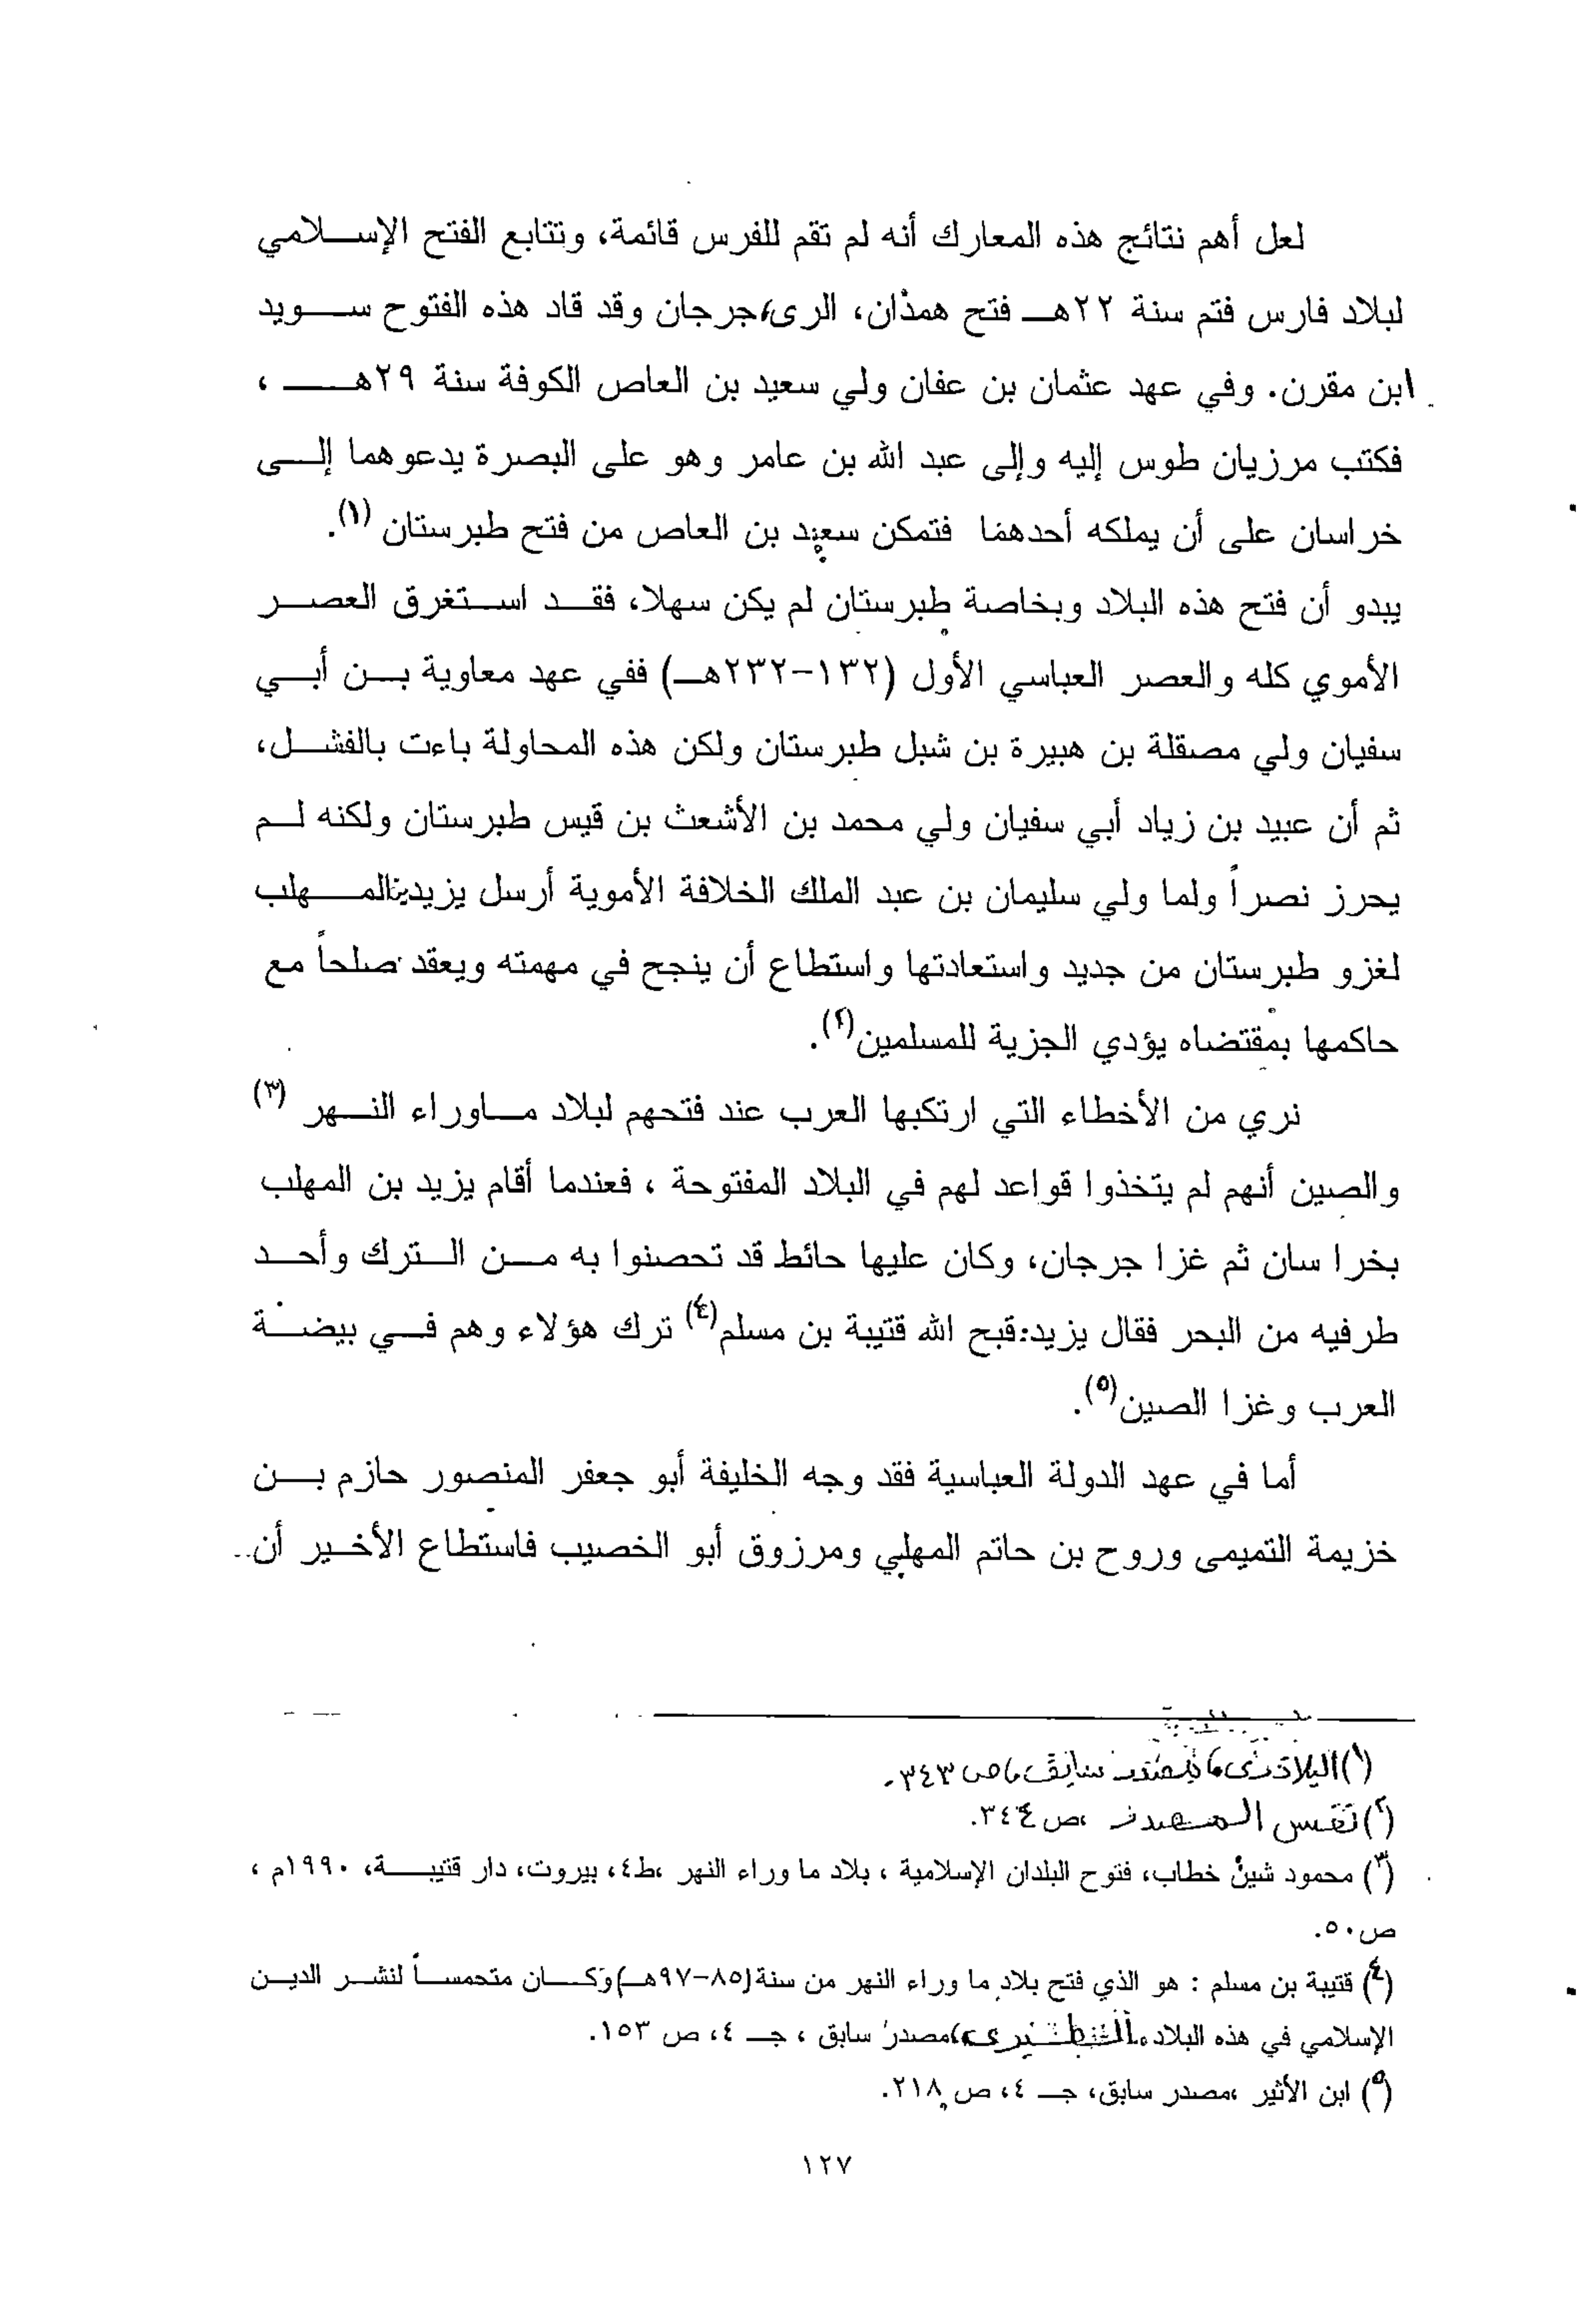 لعل أهم نتائج هذه المعارك أنه لم تقم للفرس قائمة، وتتابع الفتح الإسلامي
لبلاد فارس فتم سنة ٢٢هـ فتح همذان، الرى، جرجان وقد قاد هذه الفتوح سويد
ابن مقرن. وفي عهد عثمان بن عفان ولي سعيد بن العاص الكوفة سنة ٢٩هـ ،
فكتب مرزبان طوس إليه وإلى عبد الله بن عامر وهو على البصرة يدعوهما إلى
خراسان على أن يملكه أحدهما فتمكن سعيد بن العاص من فتح طبرستان (١).
يبدو أن فتح هذه البلاد وبخاصة طبرستان لم يكن سهلا، فقد استغرق العصر
الأموي كله والعصر العباسي الأول (١٣٢-٢٣٢هـ) ففي عهد معاوية بن أبي
سفيان ولي مصقلة بن هبيرة بن شبل طبرستان ولكن هذه المحاولة باءت بالفشل،
ثم أن عبيد بن زياد أبي سفيان ولي محمد بن الأشعث بن قيس طبرستان ولكنه لم
يحرز نصراً ولما ولي سليمان بن عبد الملك الخلافة الأموية أرسل يزيد بن المهلب
لغزو طبرستان من جديد واستعادتها واستطاع أن ينجح في مهمته ويعقد صلحاً مع
حاكمها بمقتضاه يؤدي الجزية للمسلمين(٢).
نري من الأخطاء التي ارتكبها العرب عند فتحهم لبلاد ماوراء النهر (٣)
والصين أنهم لم يتخذوا قواعد لهم في البلاد المفتوحة ، فعندما أقام يزيد بن المهلب
بخرا سان ثم غزا جرجان، وكان عليها حائط قد تحصنوا به من الترك وأحد
طرفيه من البحر فقال يزيد:قبح الله قتيبة بن مسلم(٤) ترك هؤلاء وهم في بيضة
العرب وغزا الصين(٥).
أما في عهد الدولة العباسية فقد وجه الخليفة أبو جعفر المنصور حازم بن
خزيمة التميمى وروح بن حاتم المهلبي ومرزوق أبو الخصيب فاستطاع الأخير أن
(١) البلاذرى، مصدر سابق، ص ٣٤٣.
(٢) نفس المصدر ،ص ٣٤٤.
(٣) محمود شيث خطاب، فتوح البلدان الإسلامية ، بلاد ما وراء النهر ،ط٤، بيروت، دار قتيبة، ١٩٩٠م ،
ص٥٠.
(٤) قتيبة بن مسلم : هو الذي فتح بلاد ما وراء النهر من سنة (٨٥-٩٧هـ) وكان متحمساً لنشر الدين
الإسلامي في هذه البلاد، الطبرى، مصدر سابق ، جـ ٤، ص ١٥٣.
(٥) ابن الأثير ،مصدر سابق، جـ ٤، ص ٢١٨.
١٢٧